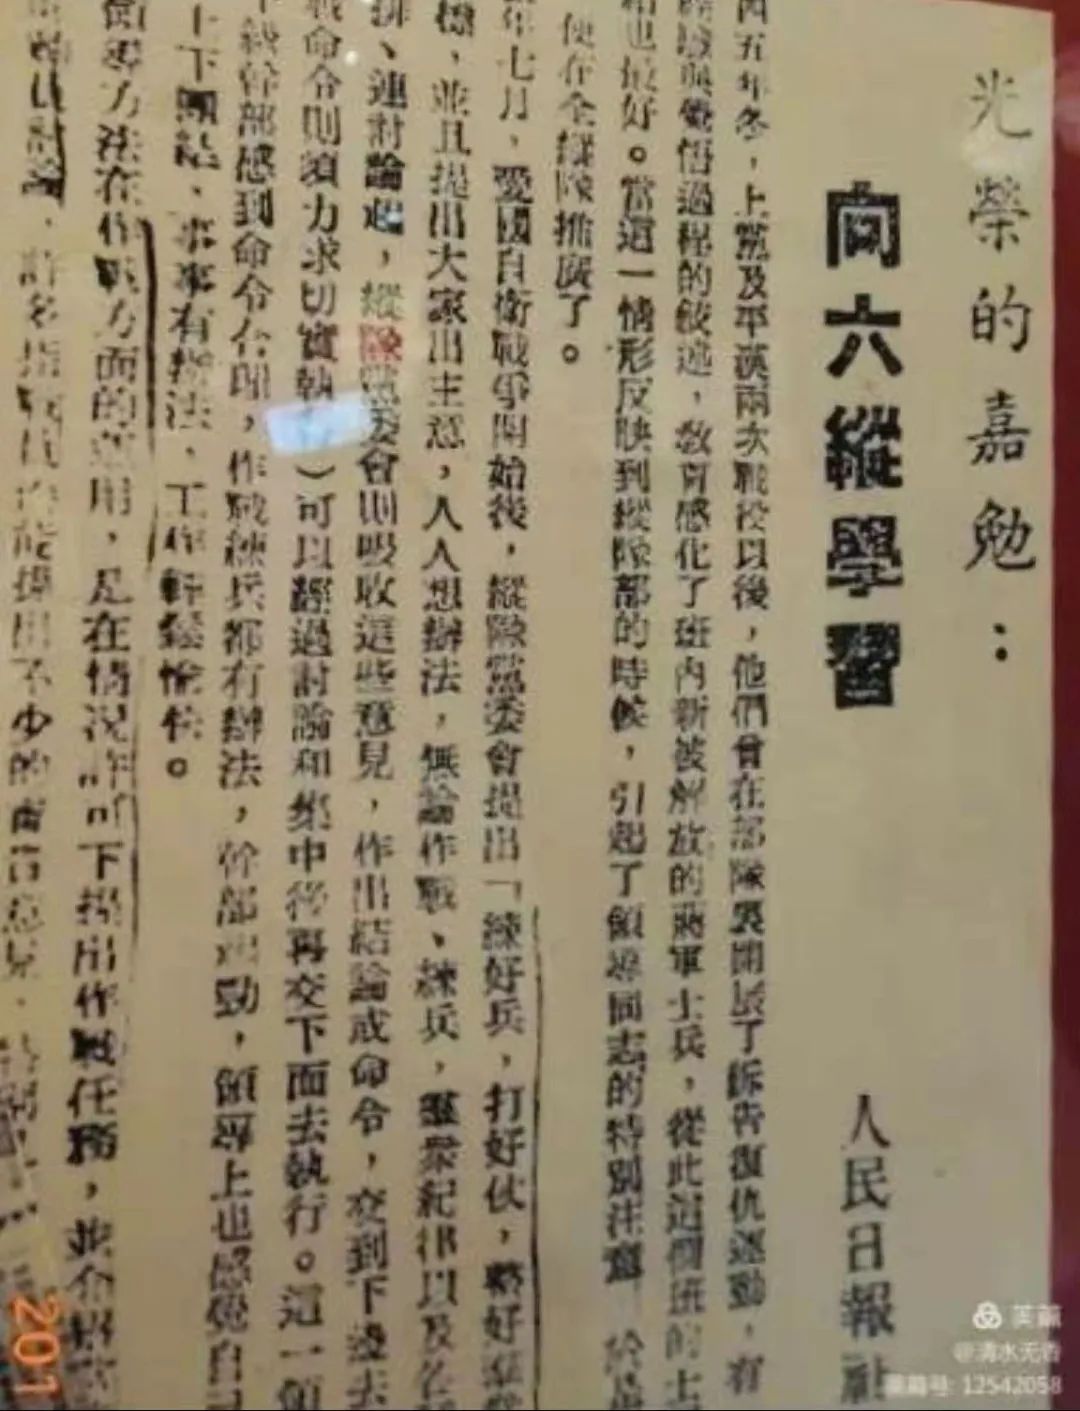 光榮的嘉勉：
向六縱學習
人民日報社
四五年冬，上黨及平漢兩次戰役以後，他們曾在部隊裏開展了訴苦復仇運動，有
覺悟過程的敘述，教育感化了班內新被解放的蔣軍士兵，從此這個班的士
也最好。當這一情形反映到縱隊部的時候，引起了領導同志的特別注意，於是
便在全縱隊推廣了。
年七月，愛國自衛戰爭開始後，縱隊黨委會提出「練好兵，打好仗，整好
標，並且提出大家出主意，人人想辦法，無論作戰、練兵，羣眾紀律以及各
排、連討論起，縱隊黨委會則吸收這些意見，作出結論或命令，交到下邊去
戰命令則須力求切實執）可以經過討論和集中後再交下面去執行。這一領
下級幹部感到命令合理，作戰練兵都有辦法，幹部主動，領導上也感覺自己
上下團結，事事有辦法，工作輕鬆愉快。
領導方法在作戰方面的運用，是在情況許可下提出作戰任務，並介紹
討論，許多指戰員能提出不少的意見，
201
美篇
@清水无香
美篇号: 12542058